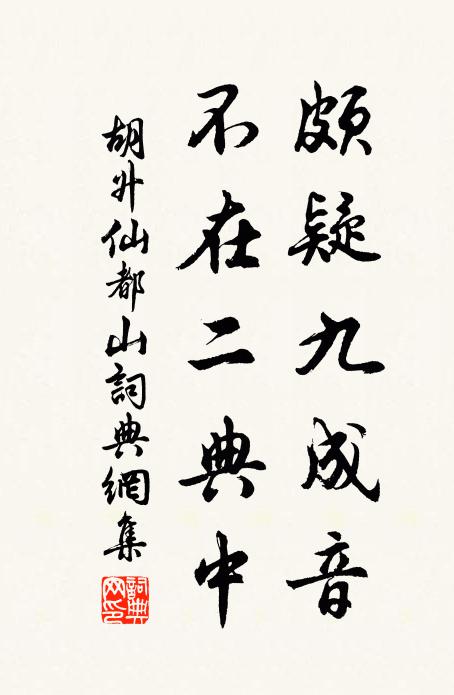 頗疑九成音
不在二典中
胡升仙都山詞典網集
詞典
网印